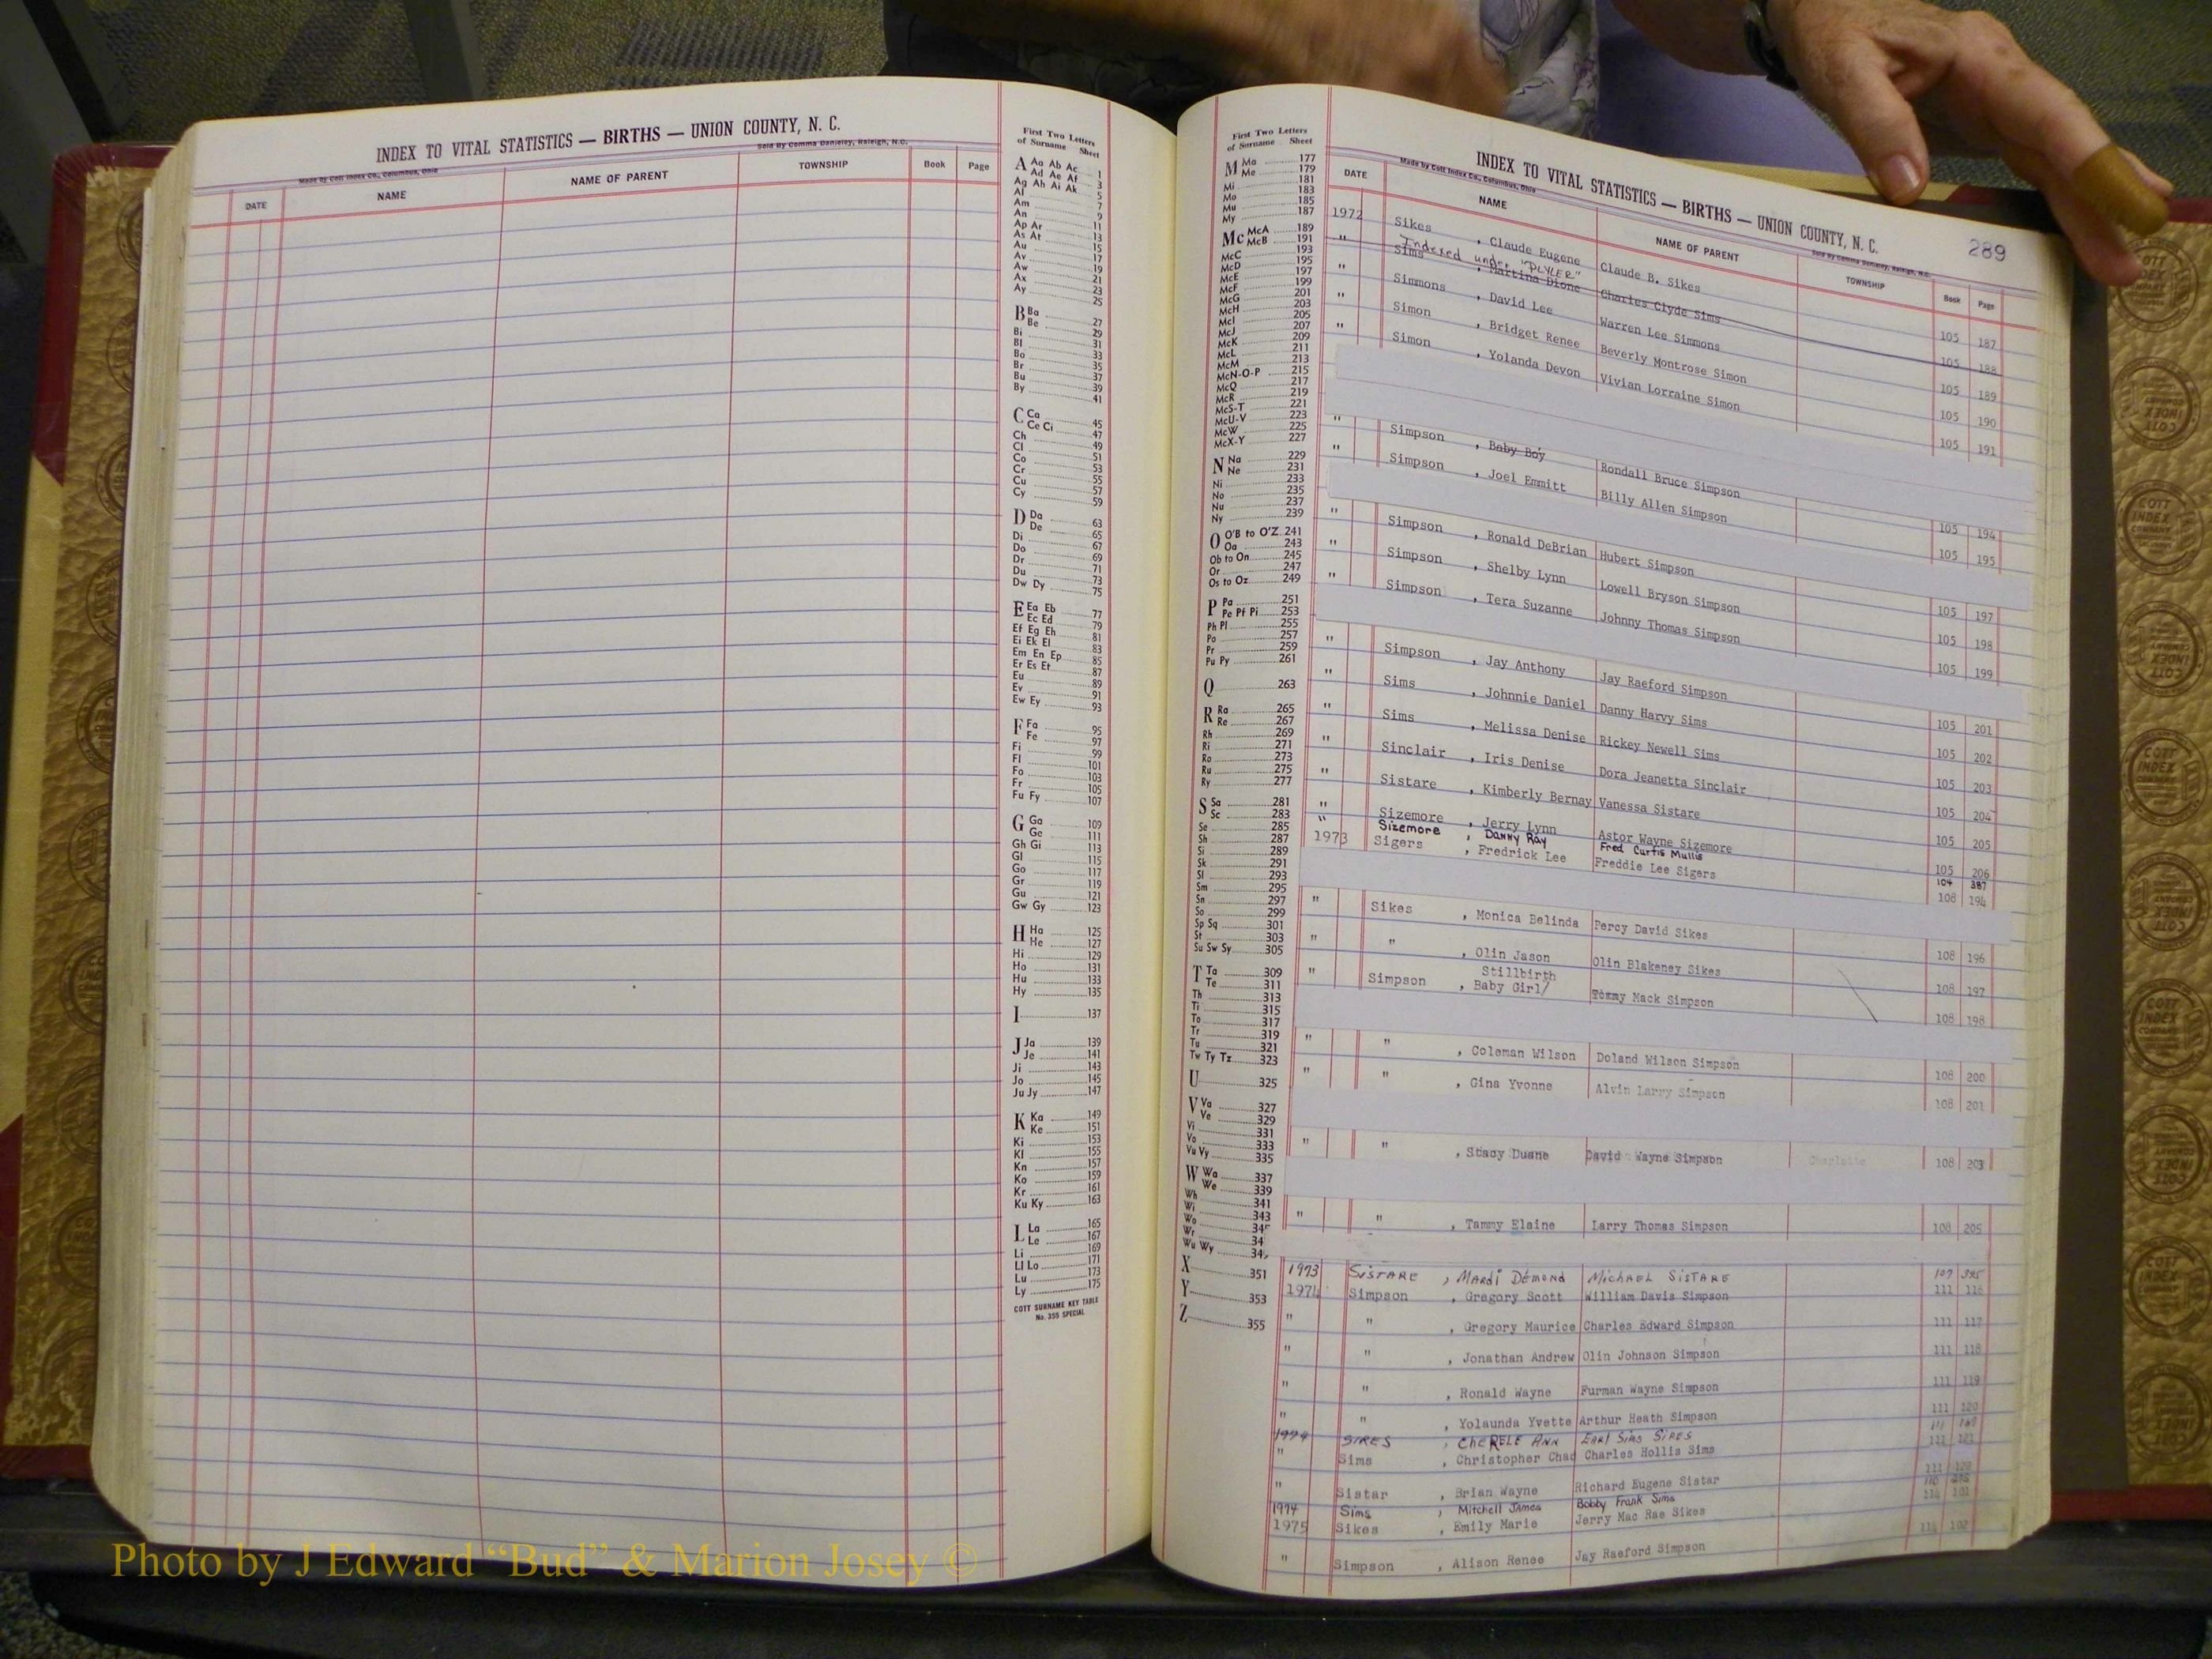 INDEX TO VITAL STATISTICS — BIRTHS — UNION COUNTY, N. C.
Made by Cott Index Co., Columbus, Ohio
Sold by Comma Danieley, Raleigh, N.C.
DATE NAME NAME OF PARENT TOWNSHIP Book Page
First Two Letters
of Surname Sheet
A Aa Ab Ac 1
Ad Ae Af 3
Ag Ah Ai Ak 5
Al 7
Am 9
An 11
Ap Ar 13
As At 15
Au 17
Av 19
Aw 21
Ax 23
Ay 25
B Ba 27
Be 29
Bi 31
Bl 33
Bo 35
Br 37
Bu 39
By 41
C Ca 45
Ce Ci 47
Ch 49
Cl 51
Co 53
Cr 55
Cu 57
Cy 59
D Da 63
De 65
Di 67
Do 69
Dr 71
Du 73
Dw Dy 75
E Ea Eb 77
Ec Ed 79
Ef Eg Eh 81
Ei Ek El 83
Em En Ep 85
Er Es Et 87
Eu 89
Ev 91
Ew Ey 93
F Fa 95
Fe 97
Fi 99
Fl 101
Fo 103
Fr 105
Fu Fy 107
G Ga 109
Ge 111
Gh Gi 113
Gl 115
Go 117
Gr 119
Gu 121
Gw Gy 123
H Ha 125
He 127
Hi 129
Ho 131
Hu 133
Hy 135
I 137
J Ja 139
Je 141
Ji 143
Jo 145
Ju Jy 147
K Ka 149
Ke 151
Ki 153
Kl 155
Kn 157
Ko 159
Kr 161
Ku Ky 163
L La 165
Le 167
Li 169
Ll Lo 171
Lu 173
Ly 175
COTT SURNAME KEY TABLE
No. 355 SPECIAL
First Two Letters
of Surname Sheet
M Ma 177
Me 179
Mi 181
Mo 183
Mu 185
My 187
Mc McA 189
McB 191
McC 193
McD 195
McE 197
McF 199
McG 201
McH 203
McI 205
McJ 207
McK 209
McL 211
McM 213
McN-O-P 215
McQ 217
McR 219
McS-T 221
McU-V 223
McW 225
McX-Y 227
N Na 229
Ne 231
Ni 233
No 235
Nu 237
Ny 239
O O'B to O'Z 241
Oa 243
Ob to On 245
Or 247
Os to Oz 249
P Pa 251
Pe Pf Pi 253
Ph Pl 255
Po 257
Pr 259
Pu Py 261
Q 263
R Ra 265
Re 267
Rh 269
Ri 271
Ro 273
Ru 275
Ry 277
S Sa 281
Sc 283
Se 285
Sh 287
Si 289
Sk 291
Sl 293
Sm 295
Sn 297
So 299
Sp Sq 301
St 303
Su Sw Sy 305
T Ta 309
Te 311
Th 313
Ti 315
To 317
Tr 319
Tu 321
Tw Ty Tz 323
U 325
V Va 327
Ve 329
Vi 331
Vo 333
Vu Vy 335
W Wa 337
We 339
Wh 341
Wi 343
Wo 345
Wr 34
Wu Wy 34
X 351
Y 353
Z 355
INDEX TO VITAL STATISTICS — BIRTHS — UNION COUNTY, N. C.
289
Made by Cott Index Co., Columbus, Ohio
Sold by Comma Danieley, Raleigh, N.C.
DATE NAME NAME OF PARENT TOWNSHIP Book Page
1972 Sikes , Claude Eugene Claude B. Sikes 105 187
Indexed under "PLYLER"
" Sims , Martina Dione Charles Clyde Sims 105 188
" Simmons , David Lee Warren Lee Simmons 105 189
" Simon , Bridget Renee Beverly Montrose Simon 105 190
" Simon , Yolanda Devon Vivian Lorraine Simon 105 191
" Simpson , Baby Boy Rondall Bruce Simpson 105 194
" Simpson , Joel Emmitt Billy Allen Simpson 105 195
" Simpson , Ronald DeBrian Hubert Simpson 105 197
" Simpson , Shelby Lynn Lowell Bryson Simpson 105 198
" Simpson , Tera Suzanne Johnny Thomas Simpson 105 199
" Simpson , Jay Anthony Jay Raeford Simpson 105 201
" Sims , Johnnie Daniel Danny Harvy Sims 105 202
" Sims , Melissa Denise Rickey Newell Sims 105 203
" Sinclair , Iris Denise Dora Jeanetta Sinclair 105 204
" Sistare , Kimberly Bernay Vanessa Sistare 105 205
" Sizemore , Jerry Lynn Astor Wayne Sizemore 105 206
" Sizemore , Danny Ray Fred Curtis Mullis 104 387
1973 Sigers , Fredrick Lee Freddie Lee Sigers 108 194
" Sikes , Monica Belinda Percy David Sikes 108 196
" " , Olin Jason Olin Blakeney Sikes 108 197
Stillbirth
" Simpson , Baby Girl/ Tommy Mack Simpson 108 198
" " , Coleman Wilson Doland Wilson Simpson 108 200
" " , Gina Yvonne Alvin Larry Simpson 108 201
" " , Stacy Duane David Wayne Simpson Charlotte 108 203
" " , Tammy Elaine Larry Thomas Simpson 108 205
1973 SISTARE , MARDI DEMOND MICHAEL SISTARE 107 395
1974 Simpson , Gregory Scott William Davis Simpson 111 116
" " , Gregory Maurice Charles Edward Simpson 111 117
" " , Jonathan Andrew Olin Johnson Simpson 111 118
" " , Ronald Wayne Furman Wayne Simpson 111 119
" " , Yolaunda Yvette Arthur Heath Simpson 111 120
1974 SIRES , CHERELE ANN EARL SIMS SIRES 111
" Sims , Christopher Chad Charles Hollis Sims 111 121
" Sistar , Brian Wayne Richard Eugene Sistar 111 122
1974 Sims , Mitchell James Bobby Frank Sims
1975 Sikes , Emily Marie Jerry Mac Rae Sikes 114 101
" Simpson , Alison Renee Jay Raeford Simpson 114 102
Photo by J Edward "Bud" & Marion Josey ©